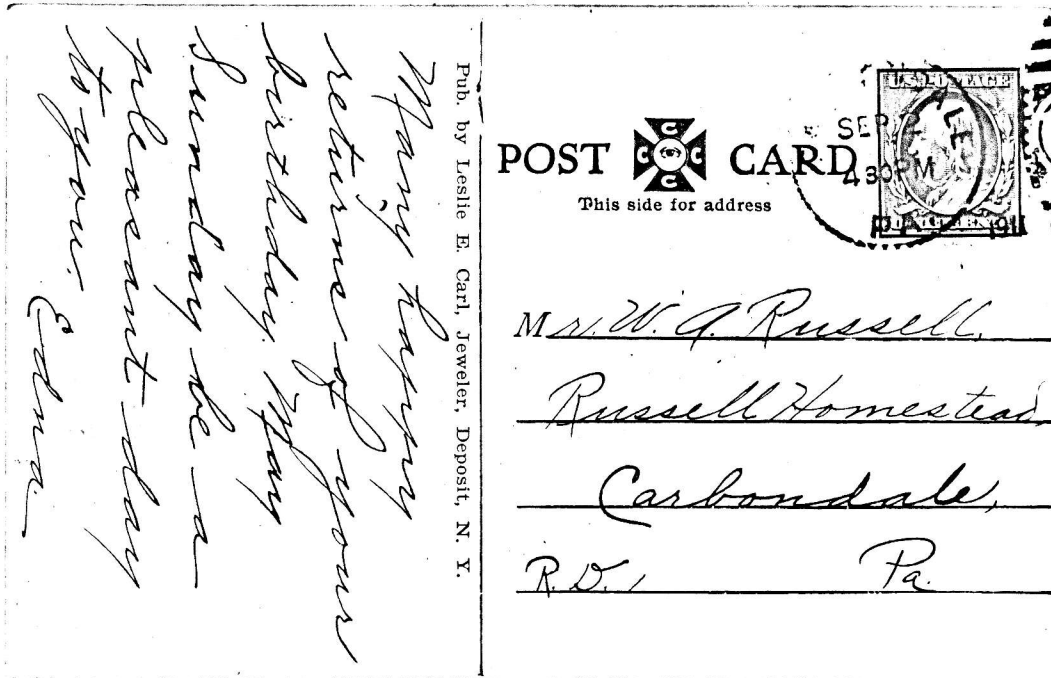 Many happy
returns of your
birthday. May
Sunday be a
pleasant day
to you.
Edna.
Pub. by Leslie E. Carl, Jeweler, Deposit, N. Y.
POST CARD
C
C C
C
This side for address
U.S. POSTAGE
SEP
4 30 PM
PA. 1911
Mr. W. A. Russell,
Russell Homestead,
Carbondale,
R.D. 1 Pa.